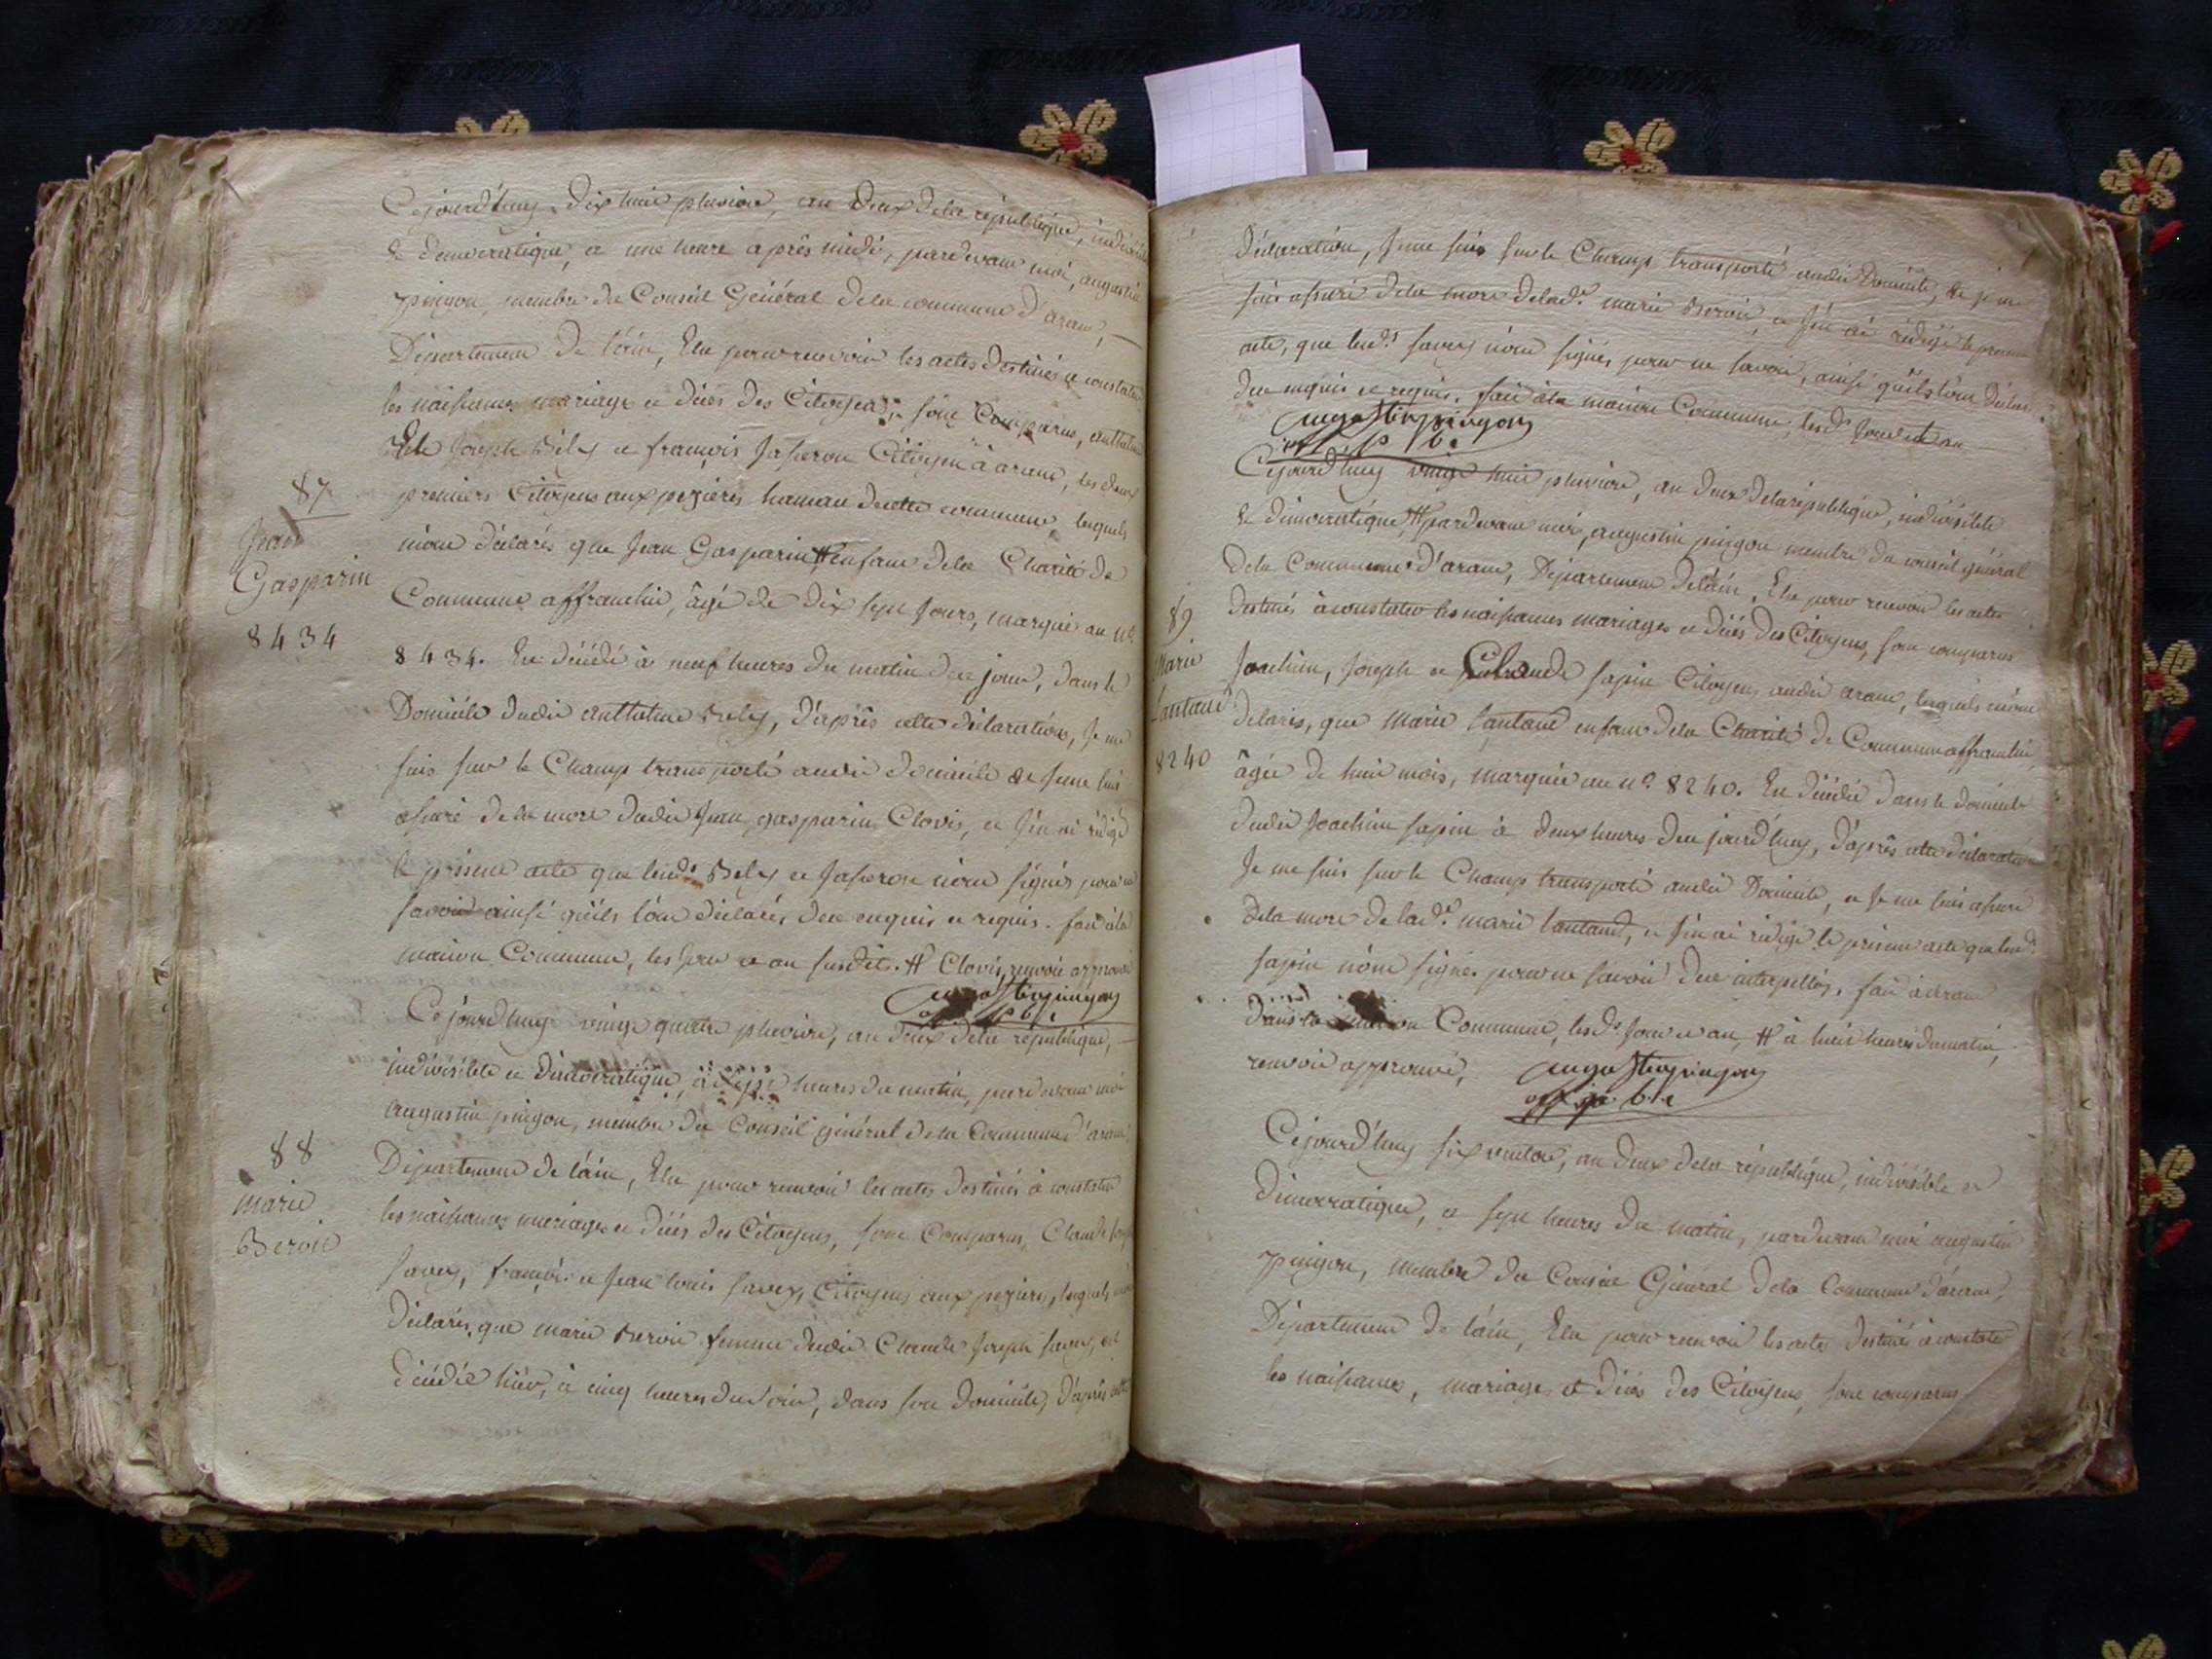 Cejourd'huy dix huit pluviose, an deux dela république, indivisible
& democratique, a une heure après midi, pardevant moi, augustin
pingon, membre du Conseil Général dela commune d'aranc,
Département de l'ain, Elu pour recevoir les actes destinés a constater
les naissances mariages et décès des Citoyens, sont Comparus, anthelme
Joseph Bely et françois Jaseron Citoyen à aranc, les deux
premiers Citoyens aux pezieres hameau decette commune, lesquels
m'ont déclarés que Jean Gasparin # enfant dela Charité de
87
Jean
Gasparin
8434
Commune affranchie, âgé de dix sept Jours, marqué au n°
8434. Est décédé à neuf heures du matin dece jour, dans le
Domicile dudit anthelme Bely, d'après cette déclaration, Je me
suis sur le Champ transporté audit domicile & Je me suis
assuré de la mort dudit Jean gasparin Clovis, et J'en ai rédigé
le présent acte que lesds Bely et Jaseron n'ont signés pour ne
savoir ainsi qu'ils l'ont déclarés dece enquis et requis. fait à la
maison Commune, les Jour et an susdits. # Clovis, renvoi approuvé
augustin pingon
off. pb.c
Cejourd'huy vingt quatre pluviose, an deux dela république,
indivisible et démocratique, à sept heures du matin, pardevant moi
augustin pingon, membre du Conseil général dela Commune d'aranc,
88
marie
Beroie
Département de l'ain, Elu pour recevoir les actes destinés à constater
les naissances mariages et décès des Citoyens, sont Comparus, Claude Joseph
Savey, françois et Jean louis Savey, Citoyens aux pezieres, lesquels m'ont
déclarés, que marie Beroie femme dudit Claude Joseph Savey, est
décédée hier, à cinq heures du soir, dans son domicile, d'après cette
déclaration, Je me suis sur le Champ transporté audit Domicile, & je me
suis assuré dela mort delade marie Beroie, et J'en ai rédigé le présent
acte, que lesds Savey n'ont signés, pour ne savoir, ainsi qu'ils l'ont déclarés
dece enquis et requis. fait à la maison Commune, lesds Jour et an
augustin pingon
off p b.c
Cejourd'huy vingt huit pluviose, an deux dela république, indivisible
& démocratique, # pardevant moi, augustin pingon membre du conseil général
dela Commune d'aranc, Département delain, Elu pour recevoir les actes
destinés à constater les naissances mariages et décès des Citoyens, sont comparus
89
marie
lantane
8240
Joachim, Joseph et Claude sapin Citoyens audit aranc, lesquels m'ont
delarés, que marie lantane enfant dela Charité de Commune affranchie
âgée de huit mois, marquée au n°. 8240. Est décédée dans le domicile
dudit Joachim sapin à deux heures dece jourd'huy, d'après cette déclaration
Je me suis sur le Champ transporté audit Domicile, et Je me suis assuré
dela mort de lade. marie lantane, et J'en ai rédigé le présent acte que lesd.
sapin n'ont signés pour ne savoir dece interpellés. fait à aranc
dans la maison Commune, lesds. Jour et an, # à huit heures du matin,
renvoi approuvé,
augustin pingon
off. p. b.c
Cejourd'huy six ventose, an deux dela république, indivisible et
démocratique, a sept heures du matin, pardevant moi augustin
pingon, membre du Conseil Général dela Commune d'aranc,
Département de l'ain, Elu pour recevoir les actes destinés à constater
les naissances, mariages et décès des Citoyens, sont comparus